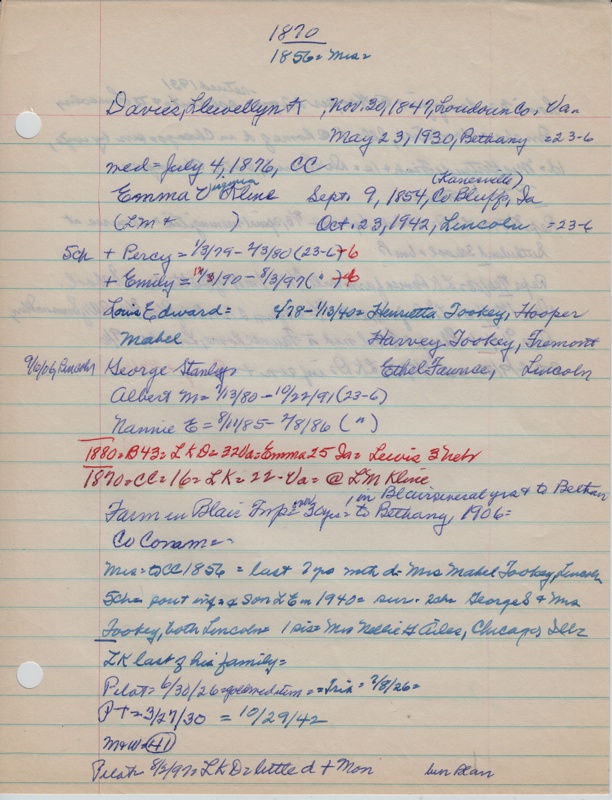 1870
1856 = Mrs =
Davies, Llewellyn K , Nov. 30, 1847, Loudoun Co., Va.
May 23, 1930, Bethany = 23-6
med = July 4, 1876, CC
(Kanesville)
Emma Virginia Kline Sept. 9, 1854, Co Bluff, Ia
(LM + ) Oct. 23, 1942, Lincoln = 23-6
5ch + Percy = 1/3/79 - 2/3/80 (23-6)
+ Emily = 1/90 - 8/3/97 ( "
Louis Edward = 4/78 - 1/13/40 = Henrietta Tookey, Hooper
Mabel Harvey Tookey, Fremont
9/6/06, Lincoln George Stanley = Ethel Faunce, Lincoln
Albert M = 1/13/80 - 10/22/91 (23-6)
Nannie E = 8/11/85 - 2/8/86 ( " )
1880 = B43 = LKD = 32 Va = Emma 25 Ia = Lewis 3 Neb
1870 = CC = 16 = LK = 22 - Va = @ LM Kline
in Blair several yrs & to Bethan
Farm in Blair Twp = 30 yrs = to Bethany, 1906 =
Co Comm = -
Mrs = to CC 1856 = last 2 yrs with d. Mrs Mabel Tookey, Lincoln
5ch = & son LE in 1940 = sur. 2ch George S & Mrs
Tookey, both Lincoln = 1 sis = Mrs Nellie G Ailes, Chicago Ill =
LK last of his family =
Pilot = 6/30/26 = item = = 7/8/26 =
PT = 3/27/30 = 10/29/42
M & W = 41
Pilot = 8/3/97 = LKD = little d + Mon